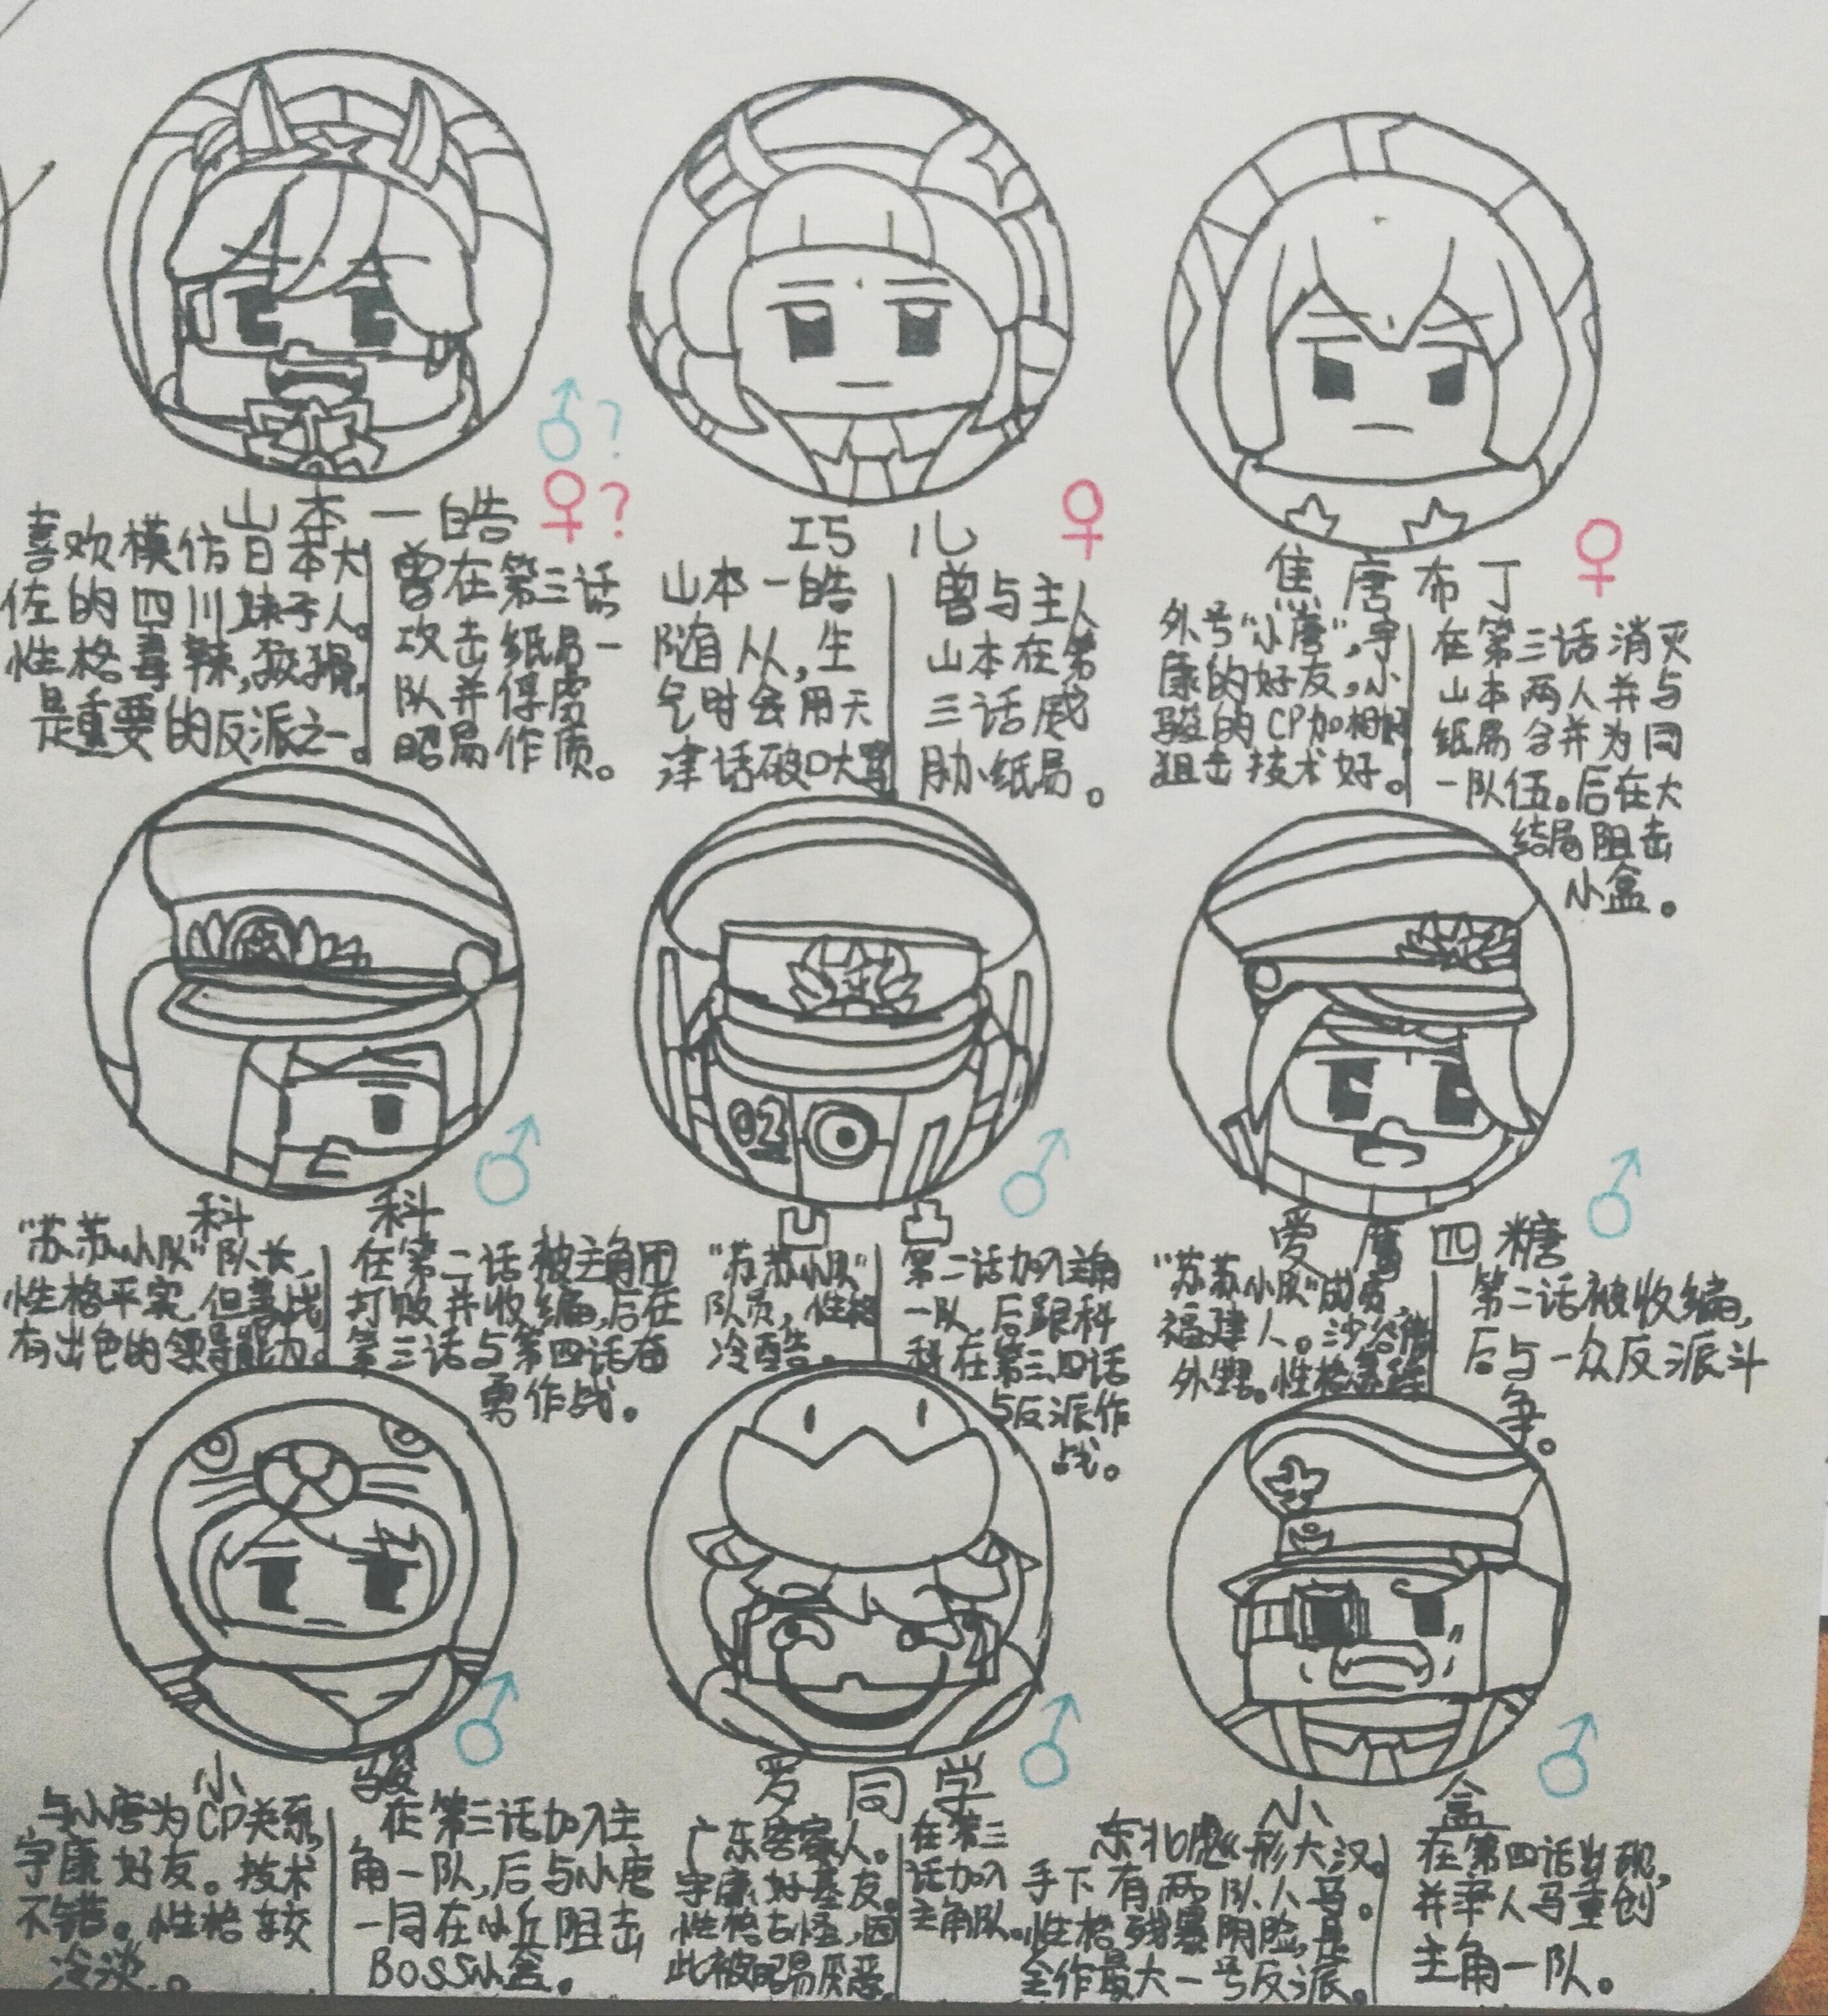 山本一皓
♂?
♀?
喜欢模仿日本大
佐的四川妹子人。
性格毒辣,狡猾,
是重要的反派之一。
曾在第三话
攻击纸易一
队并俘虏
昭易作质。
巧儿
♀
山本一皓
随从,生
气时会用天
津话破口大骂
曾与主人
山本在第
三话威
胁纸易。
焦唐布丁
♀
外号“小唐”,宇
康的好友,小
骏的CP加相好
狙击技术好。
在第三话消灭
山本两人并与
纸易合并为同
一队伍。后在大
结局阻击
小盒。
科科
♂
“苏苏小队”队长,
性格平实,但善战
有出色的领导能力。
在第二话被主角团
打败并收编,后在
第三话与第四话奋
勇作战。
凹凸
02
♂
“苏苏小队”
队员,性格
冷酷。
第二话加入主角
一队,后跟科
科在第三、四话
与反派作
战。
爱鹰四糖
♂
“苏苏小队”成员
福建人。沙
外甥。性格
第二话被收编,
后与一众反派斗
争。
小骏
♂
与小唐为CP关系,
宇康好友。技术
不错。性格较
冷淡。
在第三话加入主
角一队,后与小唐
一同在小丘阻击
BOSS小盒。
罗同学
♂
广东客家人。
宇康好基友。
性格古怪,因
此被昭易厌恶。
在第三
话加入
主角队。
小盒
♂
东北彪形大汉。
手下有两队人马。
性格残暴阴险,是
全作最大一号反派。
在第四话出现,
并率人马重创
主角一队。